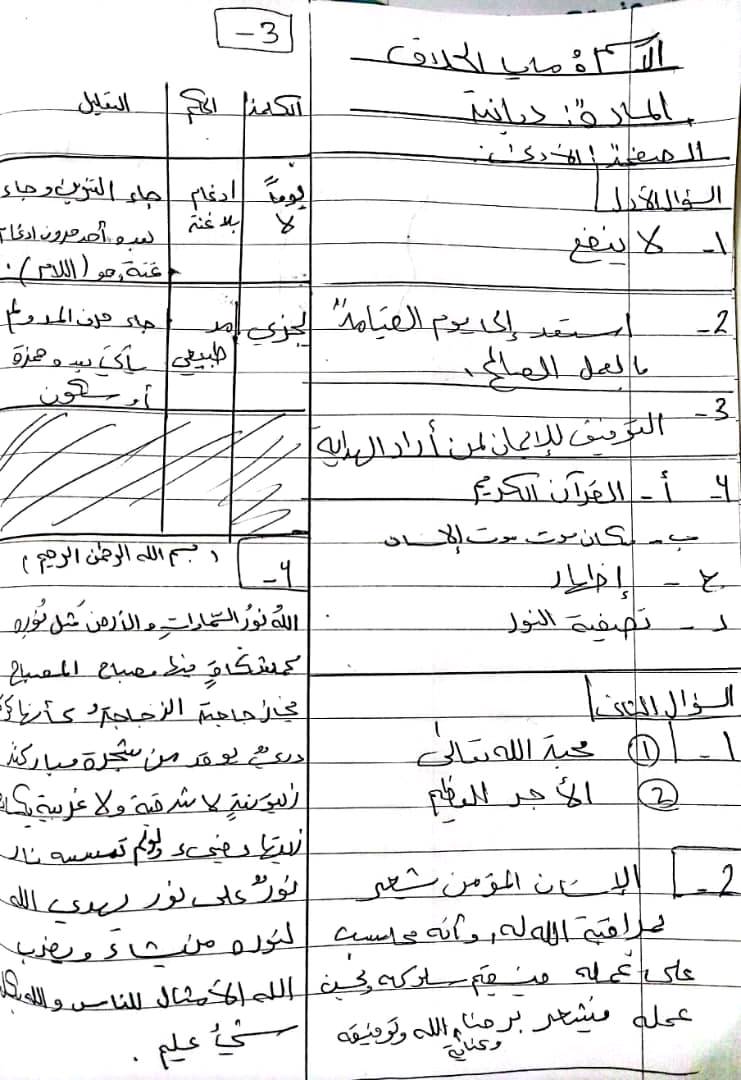 الاسم: مايا الحلاق
المادة: ديانة
الصفحة: الأولى
السؤال الأول
1- لا ينفع
2- استعد إلى يوم القيامة
بالعمل الصالح.
3- التوفيق للإيمان لمن أراد الهداية
4- أ- القرآن الكريم
ب- مكان موت الإنسان
ج- إظهار
د- تصفية النور
السؤال الثاني
1- ① محبة الله تعالى
② الأجر العظيم
2- الإنسان المؤمن شعر
بمراقبة الله له، وأنه محاسب
على عمله فيستقيم سلوكه ويحسن
عمله فيشعر برضا الله وتوفيقه
وعنايته
3-
الكلمة الحكم التعليل
يوماً لا ادغام بلا غنة جاء التنوين وجاء
بعده أحد حرون ادغام
غنة وهو (اللام).
يجزي مد طبيعي جاء حرف المد ولم
يأتي بعده همزة
أو سكون
4- (بسم الله الرحمن الرحيم)
اللهُ نورُ السَّماواتِ والأرض مَثل نُورِه
كمشكاةٍ فيها مصباح المصباح
في زجاجة الزجاجةُ كأنها كوكب
دريٌّ يوقد من شجرة مباركة
زيتونةٍ لا شرقية ولا غربية يكاد
زيتها يضيء ولو لم تمسسه نار
نورٌ على نور يهدي الله
لنوره من يشاءَ ويضرب
الله الأمثال للناس والله بكل
شيءٍ عليم.